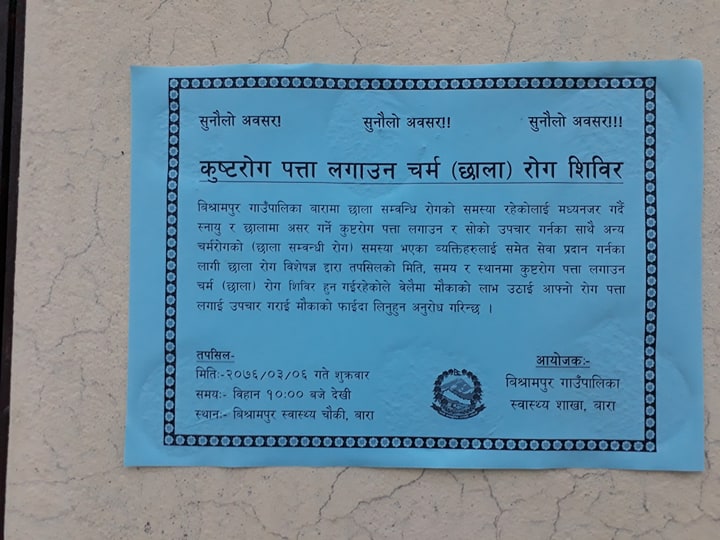 सुनौलो अवसर! सुनौलो अवसर!! सुनौलो अवसर!!!
कुष्टरोग पत्ता लगाउन चर्म (छाला) रोग शिविर
विश्रामपुर गाउँपालिका बारामा छाला सम्वन्धि रोगको समस्या रहेकोलाई मध्यनजर गर्दै
स्नायु र छालामा असर गर्ने कुष्टरोग पत्ता लगाउन र सोको उपचार गर्नका साथै अन्य
चर्मरोगको (छाला सम्वन्धी रोग) समस्या भएका व्यक्तिहरुलाई समेत सेवा प्रदान गर्नका
लागी छाला रोग विशेषज्ञ द्वारा तपसिलको मिति, समय र स्थानमा कुष्टरोग पत्ता लगाउन
चर्म (छाला) रोग शिविर हुन गईरहेकोले वेलैमा मौकाको लाभ उठाई आफ्नो रोग पत्ता
लगाई उपचार गराई मौकाको फाईदा लिनुहुन अनुरोध गरिन्छ ।
तपसिल-
मितिः-२०७६/०३/०६ गते शुक्रवार
समयः- विहान १०:०० बजे देखी
स्थानः- विश्रामपुर स्वास्थ्य चौकी, बारा
आयोजकः-
विश्रामपुर गाउँपालिका
स्वास्थ्य शाखा, बारा